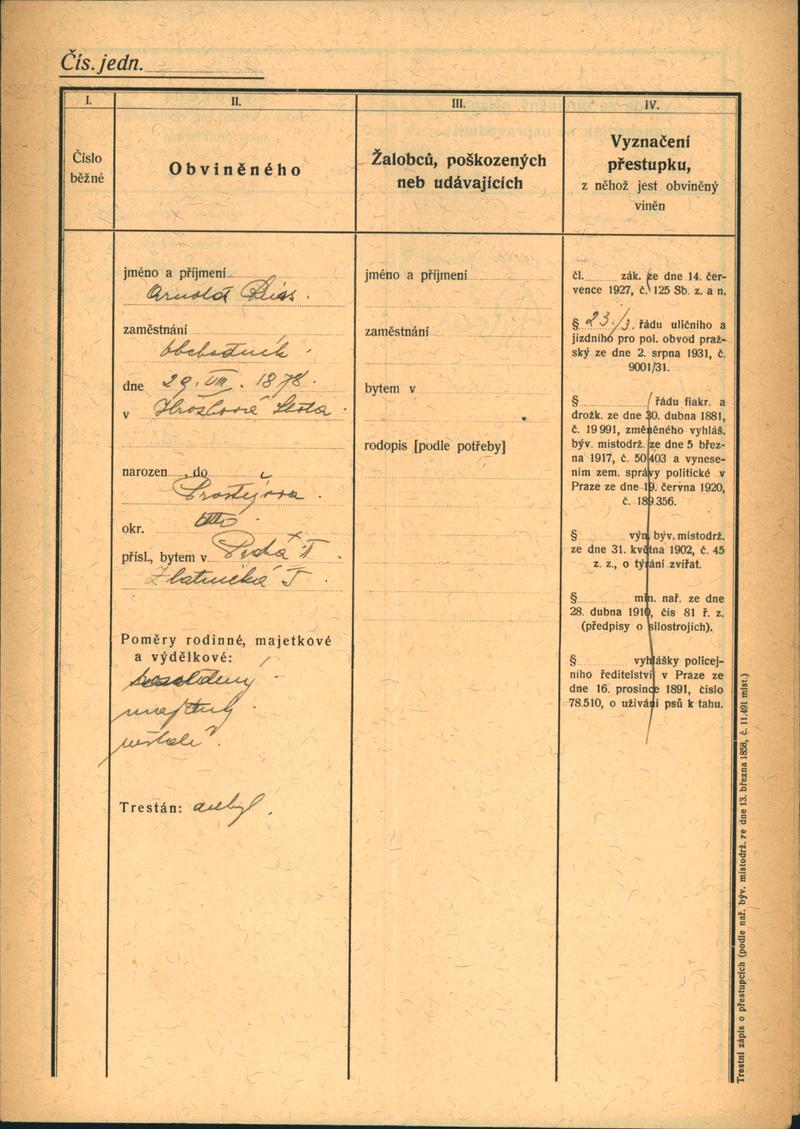 Čís. jedn.
I.
II.
III.
IV.
Číslo
běžné
Obviněného
Žalobců, poškozených
neb udávajících
Vyznačení
přestupku,
z něhož jest obviněný
viněn
jméno a příjmení
Arnold
zaměstnání
obchodník
dne 29. VIII. 1878.
v
narozen, do
okr.
přísl., bytem v II
Zlatnická
Poměry rodinné, majetkové
a výdělkové:
Trestán: nebyl.
jméno a příjmení
zaměstnání
bytem v
rodopis [podle potřeby]
čl. zák. ze dne 14. čer-
vence 1927, č. 125 Sb. z. a n.
§ 23/3. řádu uličního a
jízdního pro pol. obvod praž-
ský ze dne 2. srpna 1931, č.
9001/31.
§ řádu fiakr. a
drožk. ze dne 30. dubna 1881,
č. 19 991, změněného vyhláš.
býv. místodrž. ze dne 5 břez-
na 1917, č. 50 403 a vynese-
ním zem. správy politické v
Praze ze dne 19. června 1920,
č. 189.356.
§ výn. býv. místodrž.
ze dne 31. května 1902, č. 45
z. z., o týrání zvířat.
§ min. nař. ze dne
28. dubna 1910, čís 81 ř. z.
(předpisy o silostrojích).
§ vyhlášky policej-
ního ředitelství v Praze ze
dne 16. prosince 1891, číslo
78.510, o užívání psů k tahu.
Trestní zápis o přestupcích (podle nař. býv. místodrž. ze dne 13. března 1858, č. 11.491 míst.)